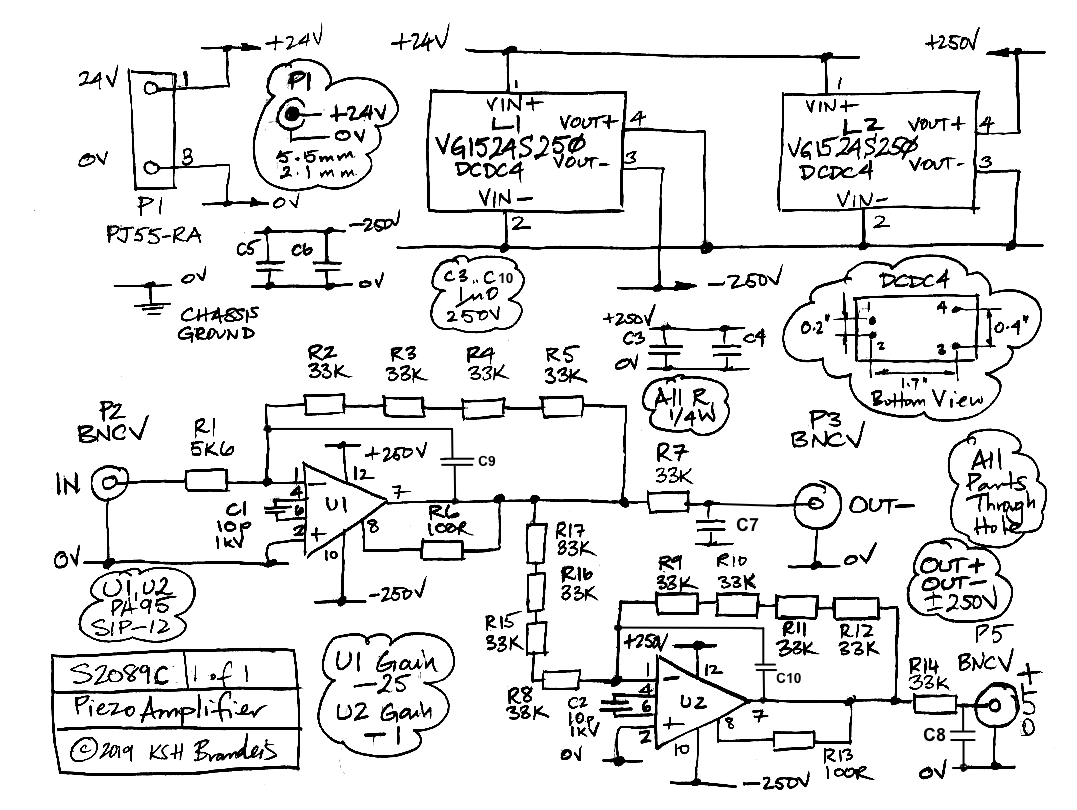 +24V
24V
1
0V
3
P1
PJ55-RA
0V
P1
+24V
0V
5.5mm
2.1mm
+24V
+250V
1
VIN+
L1
VG1524S250
DCDC4
VOUT+
4
VOUT-
3
VIN-
2
1
VIN+
L2
VG1524S250
DCDC4
VOUT+
4
VOUT-
3
VIN-
2
-250V
C5
C6
0V
0V
CHASSIS
GROUND
C3..C10
1n0
250V
-250V
DCDC4
1
2
4
3
0.2"
0.4"
1.7"
Bottom View
+250V
C3
C4
0V
All R
1/4W
R2
33K
R3
33K
R4
33K
R5
33K
P2
BNCV
R1
5K6
IN
0V
C1
10p
1kV
+250V
12
1
4
6
2
U1
7
8
10
-250V
C9
R6
100R
R7
33K
C7
P3
BNCV
OUT-
0V
All
Parts
Through
Hole
R17
33K
R16
33K
R15
33K
R8
R9
R10
33K
R11
33K
R12
33K
OUT+
OUT-
±250V
U1, U2
PA95
SIP-12
U1 Gain
-25
U2 Gain
-1
C2
10p
1kV
0V
+250V
12
1
4
6
2
U2
7
8
10
-250V
C10
R13
100R
R14
33K
C8
P5
BNCV
0V
S2089C
1 of 1
Piezo Amplifier
© 2019 KSH Brandeis